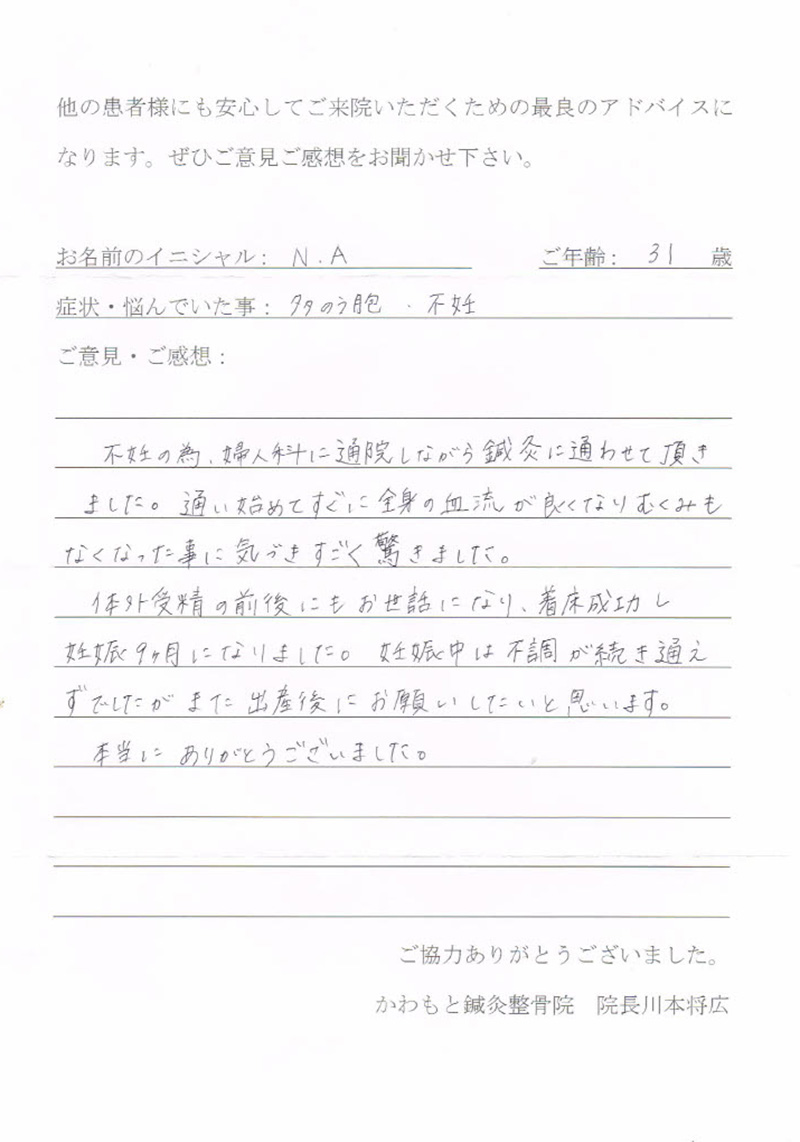 他の患者様にも安心してご来院いただくための最良のアドバイスに
なります。ぜひご意見ご感想をお聞かせ下さい。
お名前のイニシャル： N.A ご年齢： 31 歳
症状・悩んでいた事： 多のう胞 ・ 不妊
ご意見・ご感想：
不妊の為、婦人科に通院しながら鍼灸に通わせて頂き
ました。通い始めてすぐに全身の血流が良くなりむくみも
なくなった事に気づきすごく驚きました。
体外受精の前後にもお世話になり、着床成功し
妊娠9ヶ月になりました。妊娠中は不調が続き通え
ずでしたがまた出産後にお願いしたいと思います。
本当にありがとうございました。
ご協力ありがとうございました。
かわもと鍼灸整骨院 院長川本将広